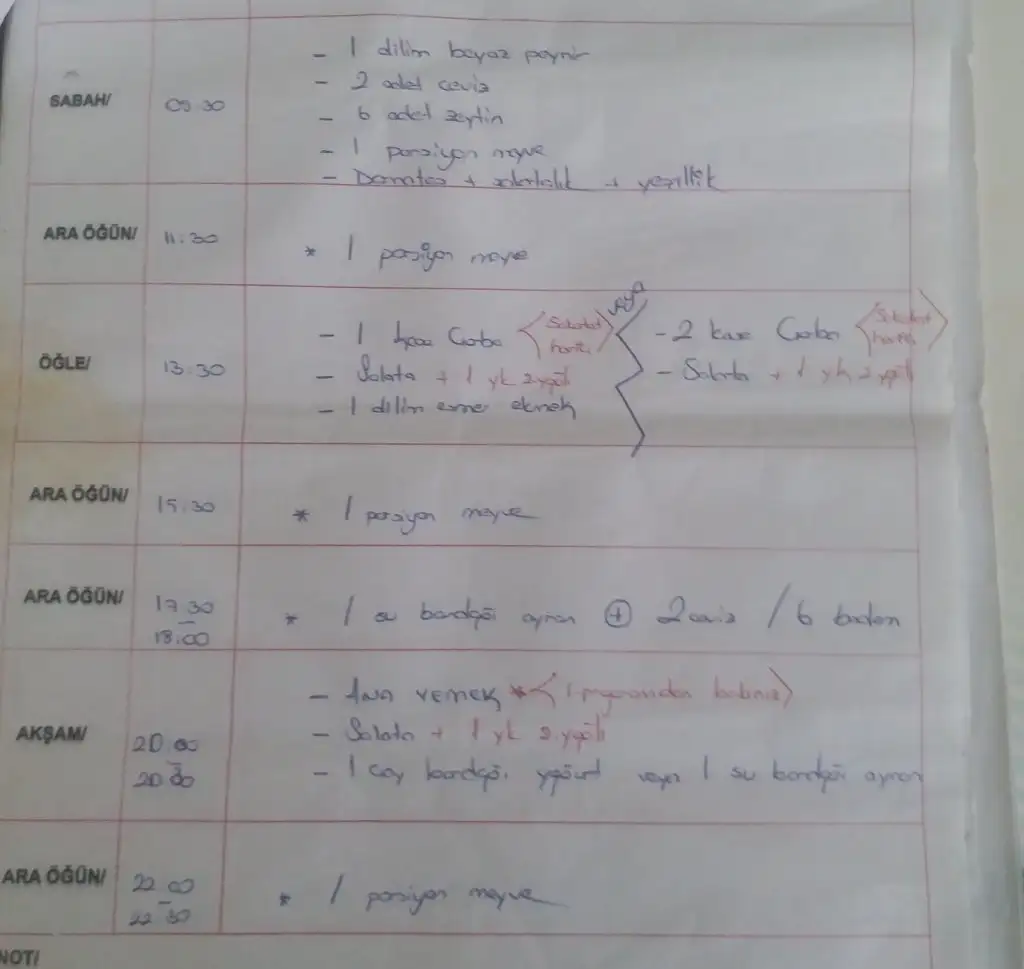 SABAH/
09 30
- 1 dilim beyaz peynir
- 2 adet ceviz
- 6 adet zeytin
- 1 porsiyon meyve
- Domates + salatalık + yeşillik
ARA ÖĞÜN/
11:30
* 1 porsiyon meyve
ÖĞLE/
13:30
- 1 kase Çorba
- Salata + 1 yk z.yağlı
- 1 dilim esmer ekmek
veya
- 2 kase Çorba
- Salata + 1 yk z.yağlı
ARA ÖĞÜN/
15:30
* 1 porsiyon meyve
ARA ÖĞÜN/
17 30
-
18:00
* 1 su bardağı ayran + 2 ceviz / 6 badem
AKŞAM/
20.00
-
20 30
- Ana YEMEK *
- Salata + 1 yk z.yağlı
- 1 çay bardağı yoğurt veya 1 su bardağı ayran
ARA ÖĞÜN/
22 00
-
22 30
* 1 porsiyon meyve
NOT/